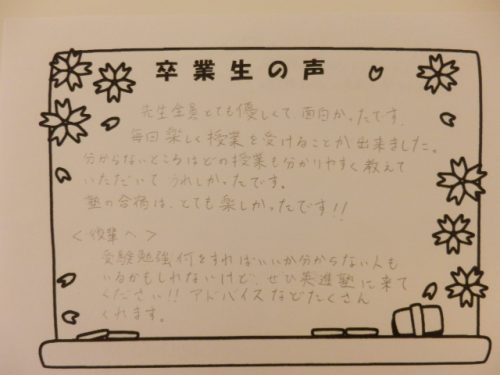 卒業生の声
先生全員とても優しくて面白かったです。
毎回楽しく授業を受けることが出来ました。
分からないところはどの授業も分かりやすく教えて
いただいてうれしかったです。
塾の合宿は、とても楽しかったです!!
<後輩へ>
受験勉強何をすればいいか分からない人も
いるかもしれないけど、ぜひ英進塾に来て
ください!!アドバイスなどたくさん
くれます。